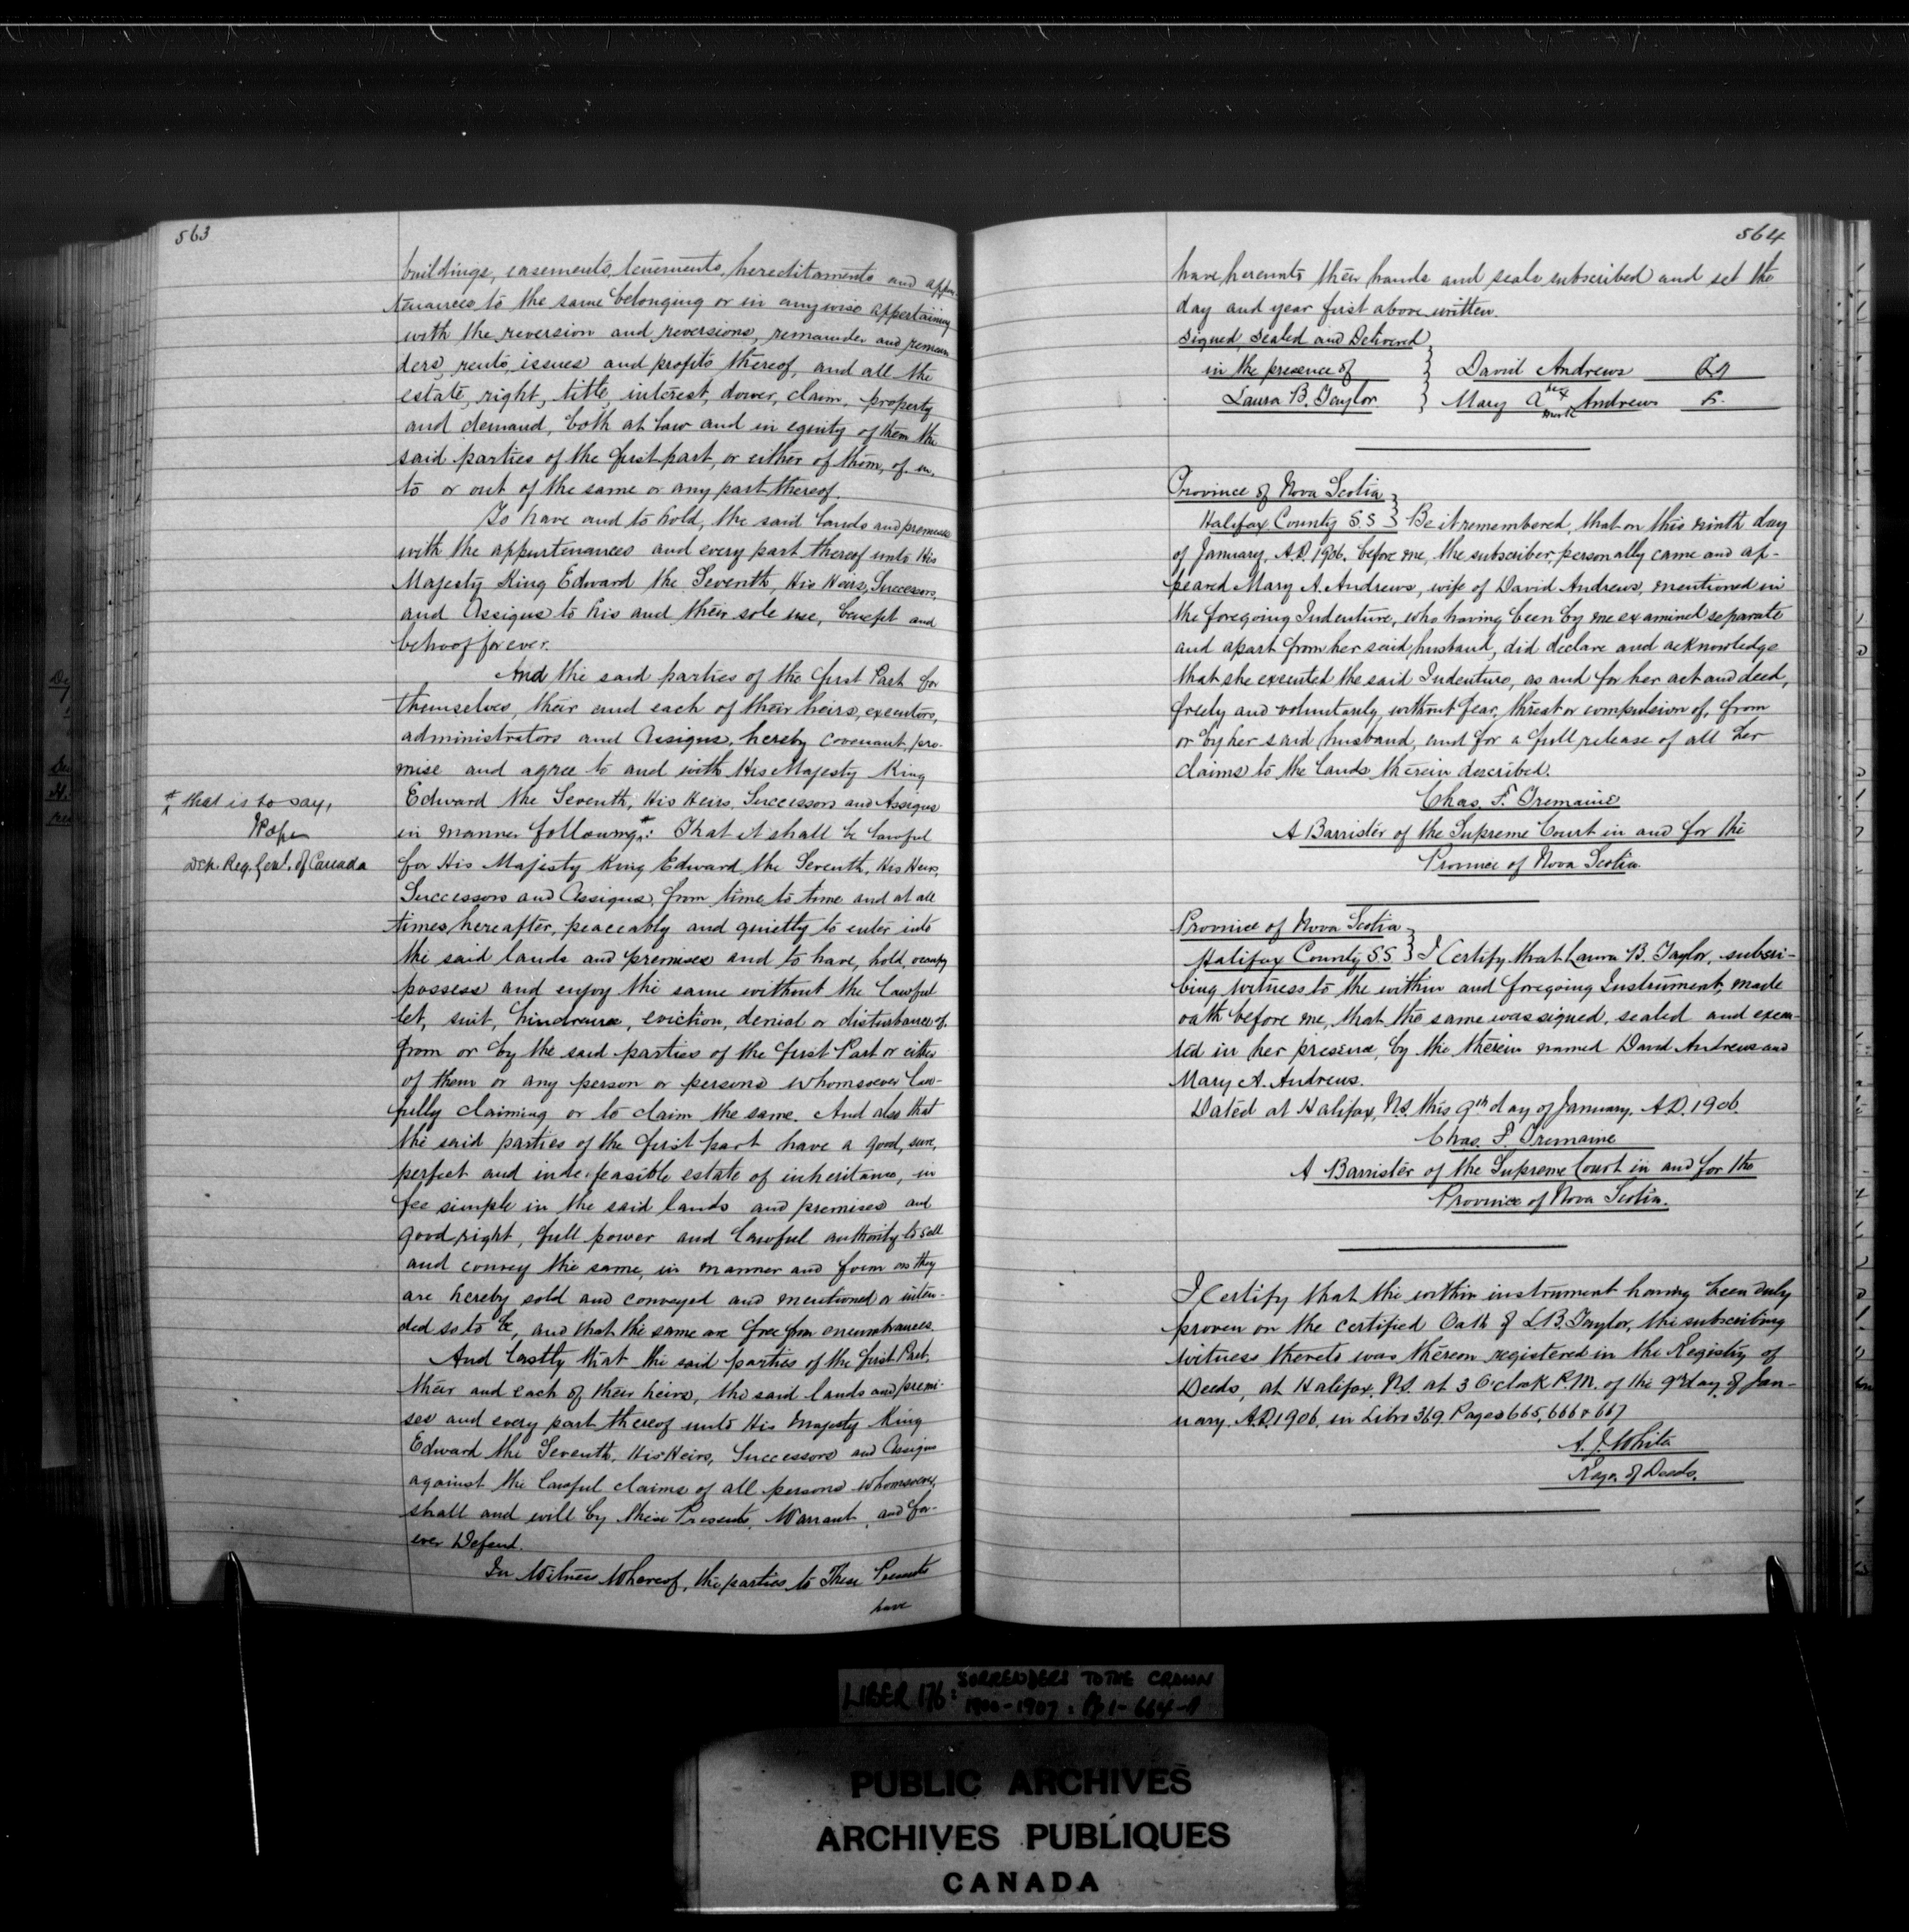 563
buildings, easements, tenements, hereditaments and appur-
tenances to the same belonging or in anywise appertaining
with the reversion and reversions, remainder and remain
ders, rents, issues and profits thereof, and all the
estate, right, title, interest, dower, claim, property
and demand, both at law and in equity of them the
said parties of the first part, or either of them, of in,
to or out of the same or any part thereof.
To have and to hold, the said lands and premises
with the appurtenances and every part thereof unto His
Majesty King Edward the Seventh, His Heirs, Successors,
and Assigns to his and their sole use, benefit and
behoof forever.
And the said parties of the first Part for
themselves, their and each of their heirs, executors,
administrators and Assigns, hereby covenant, pro-
mise and agree to and with His Majesty King
Edward the Seventh, His Heirs, Successors and Assigns
in manner following*: That it shall be lawful
for His Majesty King Edward the Seventh, His Heirs,
Successors and Assigns, from time to time and at all
times hereafter, peaceably and quietly to enter into
the said lands and premises and to have, hold, occupy
possess and enjoy the same without the lawful
let, suit, hindrance, eviction, denial or disturbance of,
from or by the said parties of the first Part or either
of them or any person or persons whomsoever law-
fully claiming or to claim the same. And also that
the said parties of the first part have a good, sure,
perfect and indefeasible estate of inheritance, in
fee simple in the said lands and premises and
good right, full power and lawful authority to sell
and convey the same, in manner and form as they
are hereby sold and conveyed and mentioned or inten-
ded so to be, and that the same are free from encumbrances.
And lastly that the said parties of the first Part,
their and each of their heirs, the said lands and premi-
ses and every part thereof unto His Majesty King
Edward the Seventh, His Heirs, Successors and Assigns
against the lawful claims of all persons whomsoever,
shall and will by these Presents, Warrant, and for-
ever Defend.
In Witness Whereof, the parties to These Presents
have
* that is to say,
Dep. Reg. Genl. of Canada
564
have hereunto their hands and seals subscribed and set the
day and year first above written.
Signed, Sealed and Delivered
in the presence of } David Andrews
Laura B. Taylor } Mary A her x mark Andrews
Province of Nova Scotia
Halifax County S.S } Be it remembered, that on this ninth day
of January, A.D. 1906, before me, the subscriber, personally came and ap-
peared Mary A. Andrews, wife of David Andrews, mentioned in
the foregoing Indenture, who having been by me examined separate
and apart from her said husband, did declare and acknowledge
that she executed the said Indenture, as and for her act and deed,
freely and voluntarily, without fear, threat or compulsion of, from
or by her said husband, and for a full release of all her
claims to the lands therein described.
Chas. F. Tremaine
A Barrister of the Supreme Court in and for the
Province of Nova Scotia
Province of Nova Scotia
Halifax County SS } I Certify that Laura B. Taylor, subscri-
bing witness to the within and foregoing Instrument, made
oath before me, that the same was signed, sealed and execu-
ted in her presence, by the therein named David Andrews and
Mary A. Andrews.
Dated at Halifax, N.S. this 9th day of January, A.D. 1906.
Chas. F. Tremaine
A Barrister of the Supreme Court in and for the
Province of Nova Scotia.
I Certify that the within instrument having been duly
proven on the certified Oath of L.B. Taylor, the subscribing
witness thereto was thereon registered in the Registry of
Deeds, at Halifax, N.S. at 3 O'clock P.M. of the 9th day of Jan-
uary, A.D. 1906, in Libro 369 Pages 665, 666 & 667
A. J. White
Regr. of Deeds.
LIBER 176: SURRENDERS TO THE CROWN
1900-1907: Pp 1-664-A
PUBLIC ARCHIVES
ARCHIVES PUBLIQUES
CANADA